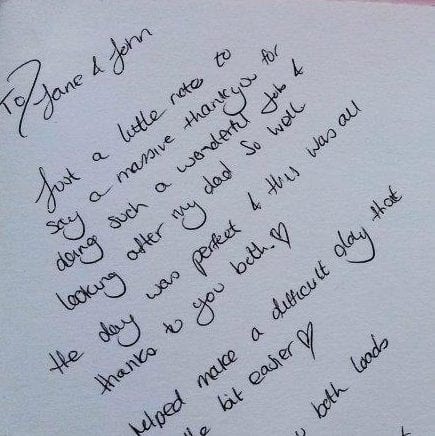 To Jane & John
Just a little note to
say a massive thankyou for
doing such a wonderful Job &
looking after my dad so well
the day was perfect & this was all
thanks to you both. ♡
helped make a difficult day that
bit easier ♡
both loads